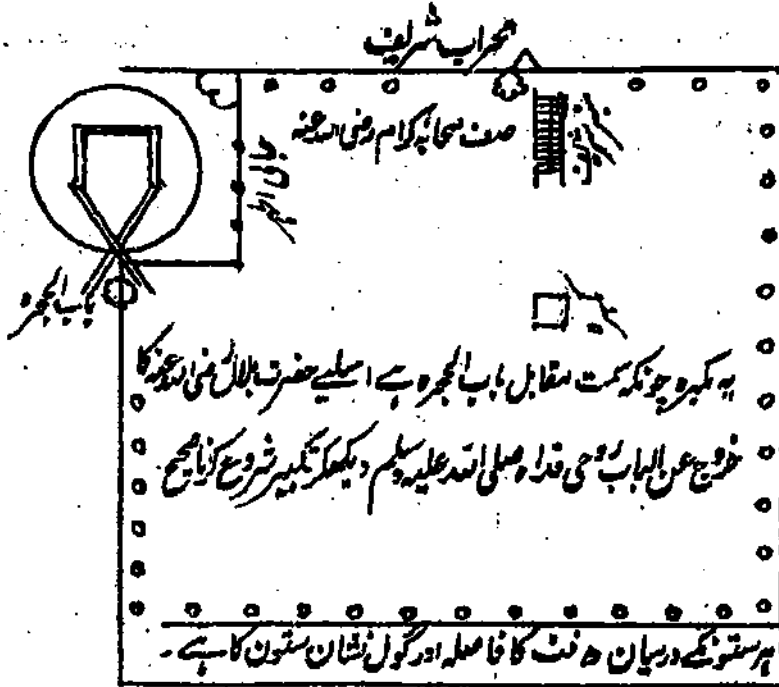 محراب شریف
صف صحابہ کرام رضی اللہ عنہ
جالی
باب الحجرہ
یہ مکبرہ چونکہ سمت مقابل باب الحجرہ ہے اسلیے حضرت بلال رضی اللہ عنہ کا
خروج عن الباب روحی فداہ صلی اللہ علیہ وسلم دیکھکر تکبیر شروع کرنا صحیح
ہر ستونکے درمیان ۵ فٹ کا فاصلہ اور گول نشان ستون کا ہے ۔